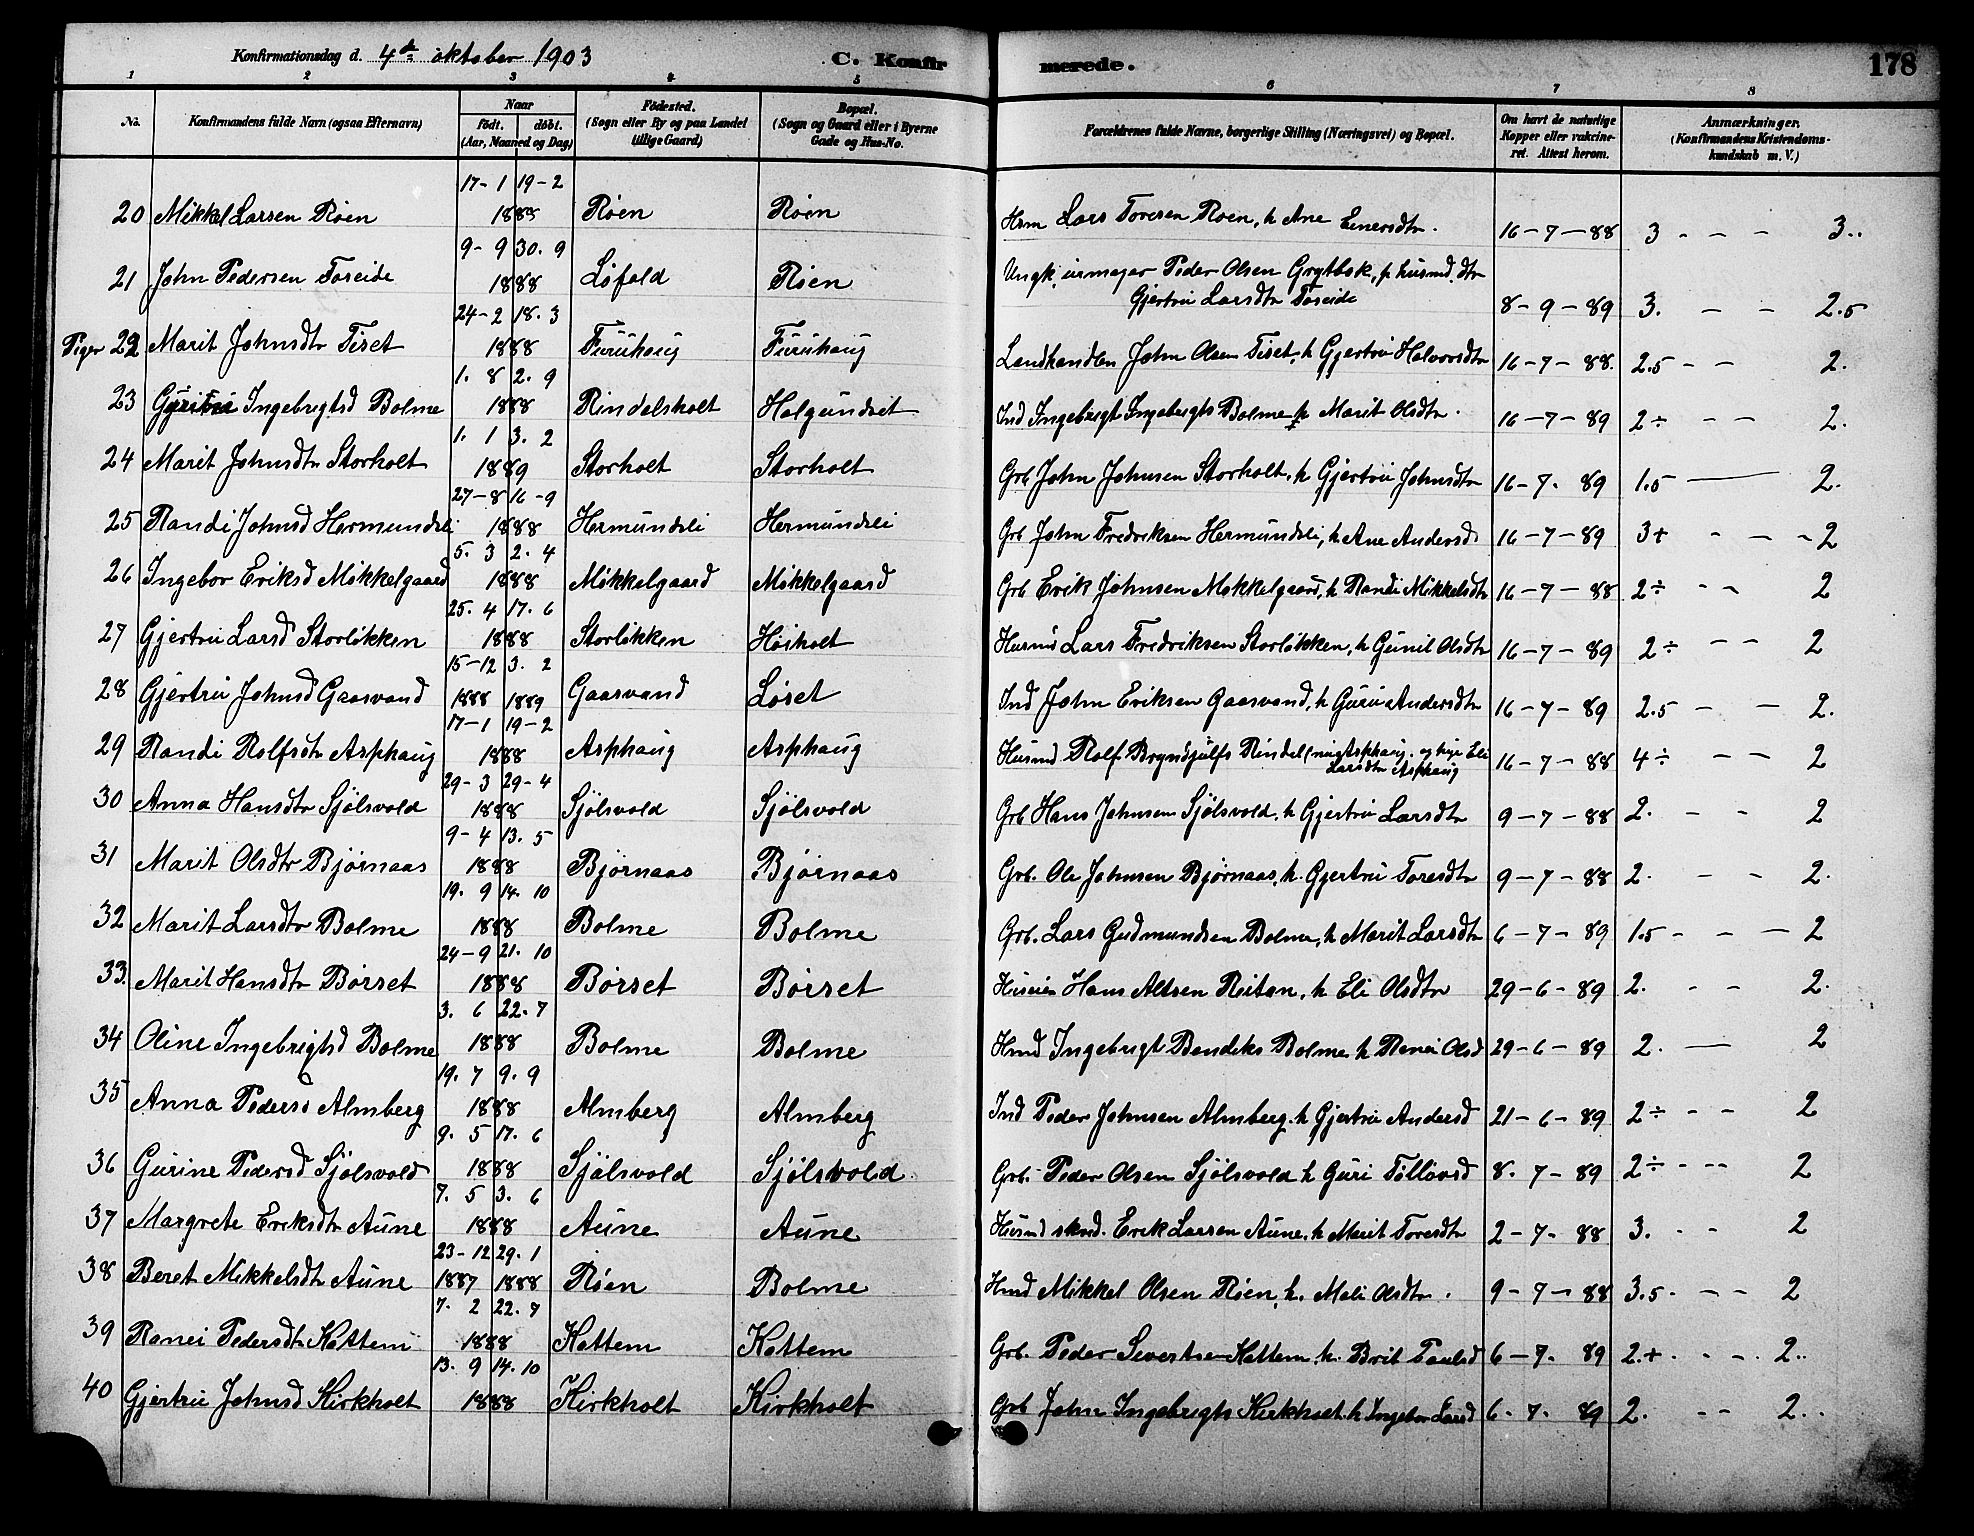 Konfirmationsdag d. 4de oktober 1903
C. Konfirmerede.
178
1 2 3 4 5 6 7 8
No. Konfirmandens fulde Navn (ogsaa Efternavn) Naar født. døbt. (Aar, Maaned og Dag) Fødested. (Sogn eller By og paa Landet tillige Gaard) Bopæl. (Sogn og Gaard eller i Byerne Gade og Hus-No. Forældrenes fulde Navne, borgerlige Stilling (Næringsvei) og Bopæl. Om havt de naturlige Kopper eller vakcineret. Attest herom. Anmærkninger, (Konfirmandens Kristendomskundskab m. V.)
17-1 19-2
20 Mikkel Larsen Røen 1888 Røen Røen Hsm Lars Toresen Røen, h Ane Einersdtr. 16-7-88 3 - - - 3..
9-9 30.9
21 John Pedersen Foseide 1888 Løfald Røen Ungk, urmager Peder Olsen Grytbak, p husmd.dtr
Gjertru Larsdtr Foseide 8-9-89 3. - - 2.5
24-2 18.3
Piger 22 Marit Johnsdtr Tiset 1888 Furuhaug Furuhaug Landhandler John Olsen Tiset, h Gjertru Halvorsdtr 16-7-88. 2.5 - - 2.
1.8 2.9
23 Ingebrigtsd Bolme 1888 Rindelsholt Halgundset Ind Ingebrigt Ingebrigts Bolme, p Marit Olsdtr. 16-7-89 2÷ - - 2.
1.1 3.2
24 Marit Johnsdtr Storholt 1889 Storholt Storholt Grb John Johnsen Storholt, h Gjertru Johnsdtr 16-7-89 1.5 — 2.
27-8 16-9
25 Randi Johnsd Hermundsli 1888 Hermundsli Hermundsli Grb John Fredriksen Hermundsli, h Ane Andersd 16-7-89 3+ - - - 2
5.3 2.4
26 Ingebor Eriksd Mikkelgaard 1888 Mikkelgaard Mikkelgaard Grb Erik Johnsen Mikkelgaard, h Randi Mikkelsdtr 16-7-88 2÷ - - 2
25.4 17.6
27 Gjertru Larsd Storløkken 1888 Storløkken Høiholt Husmd Lars Fredriksen Storløkken, h Gunil Olsdtr 16-7-89 2÷ - - 2
15-12 3.2
28 Gjertru Johnsd Gaasvand 1888 1889 Gaasvand Løset Ind John Eriksen Gaasvand, h Guru Andersdtr 16-7-89 2.5 - - 2.
17-1 19-2
29 Randi Rolfsdtr Asphaug 1888 Asphaug Asphaug Husmd Rolf Bryndjulfs Rindal (nu Asphaug. og pige Eli
Larsdtr Asphaug 16-7-88 4÷ - - 2
29-3 29-4
30 Anna Hansdtr Sjølsvold 1888 Sjølsvold Sjølsvold Grb Hans Johnsen Sjølsvold, h Gjertru Larsdtr 9-7-88 2. - - 2
9-4 13.5
31 Marit Olsdtr Bjørnaas 1888 Bjørnaas Bjørnaas Grb. Ole Johnsen Bjørnaas, h. Gjertru Toresdtr 9-7-88 2. - - 2.
19.9 14.10
32 Marit Larsdtr Bolme 1888 Bolme Bolme Grb. Lars Gudmundsen Bolme, h Marit Larsdtr 6-7-89 1.5 - - - 2
24-9 21.10
33. Marit Hansdtr Børset 1888 Børset Børset Hans Altsen Reitan, h Eli Olsdtr 29-6-89 2. - - 2.
3.6 22.7
34 Oline Ingebrigtsd Bolme 1888 Bolme Bolme Hmd Ingebrigt Bendiks Bolme h Ranei Olsd 29-6-89 2. — 2
19.7 9.9
35 Anna Pedersd Almberg 1888 Almberg Almberg Ind Peder Johnsen Almberg. h Gjertru Andersd 21-6-89 2÷ - - 2
9.5 17.6
36 Gurine Pedersd Sjølsvold 1888 Sjølsvold Sjølsvold. Grb. Peder Olsen Sjølsvold h Guri Tøllovsd 8.7-89 2÷ - - - 2
7.5 3.6
37 Margrete Eriksdtr Aune 1888 Aune Aune Husmd skrd. Erik Larsen Aune, h Marit Toresdtr 2-7-88 3. - - 2
23-12 29.1
38 Beret Mikkelsdtr Aune 1887 1888 Røen Bolme Hmd Mikkel Olsen Røen, h. Mali Olsdtr. 9-7-88 3.5. - - 2
7.2 22.7
39 Ranei Pedersdtr Kattem 1888 Kattem Kattem Grb. Peder Sivertsen Kattem, h. Brit Paulsd 6-7.89 2.+ . - - . 2..
13.9 14.10
40 Gjertru Johnsd Kirkholt 1888 Kirkholt Kirkholt Grb John Ingebrigts Kirkholt. h Ingebor Larsd 6-7-89 2. - - 2..